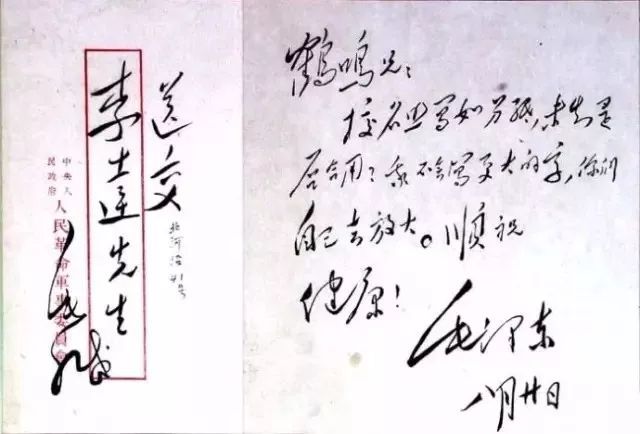 送交
李達先生
北河沿41号
中央人
民政府
人民革命軍事委員會
毛缄
鹤鸣兄：
校名业写如另纸，未知是
否合用？我不会写更大的字，你们
自己去放大。顺祝
健康！
毛泽东
八月廿日